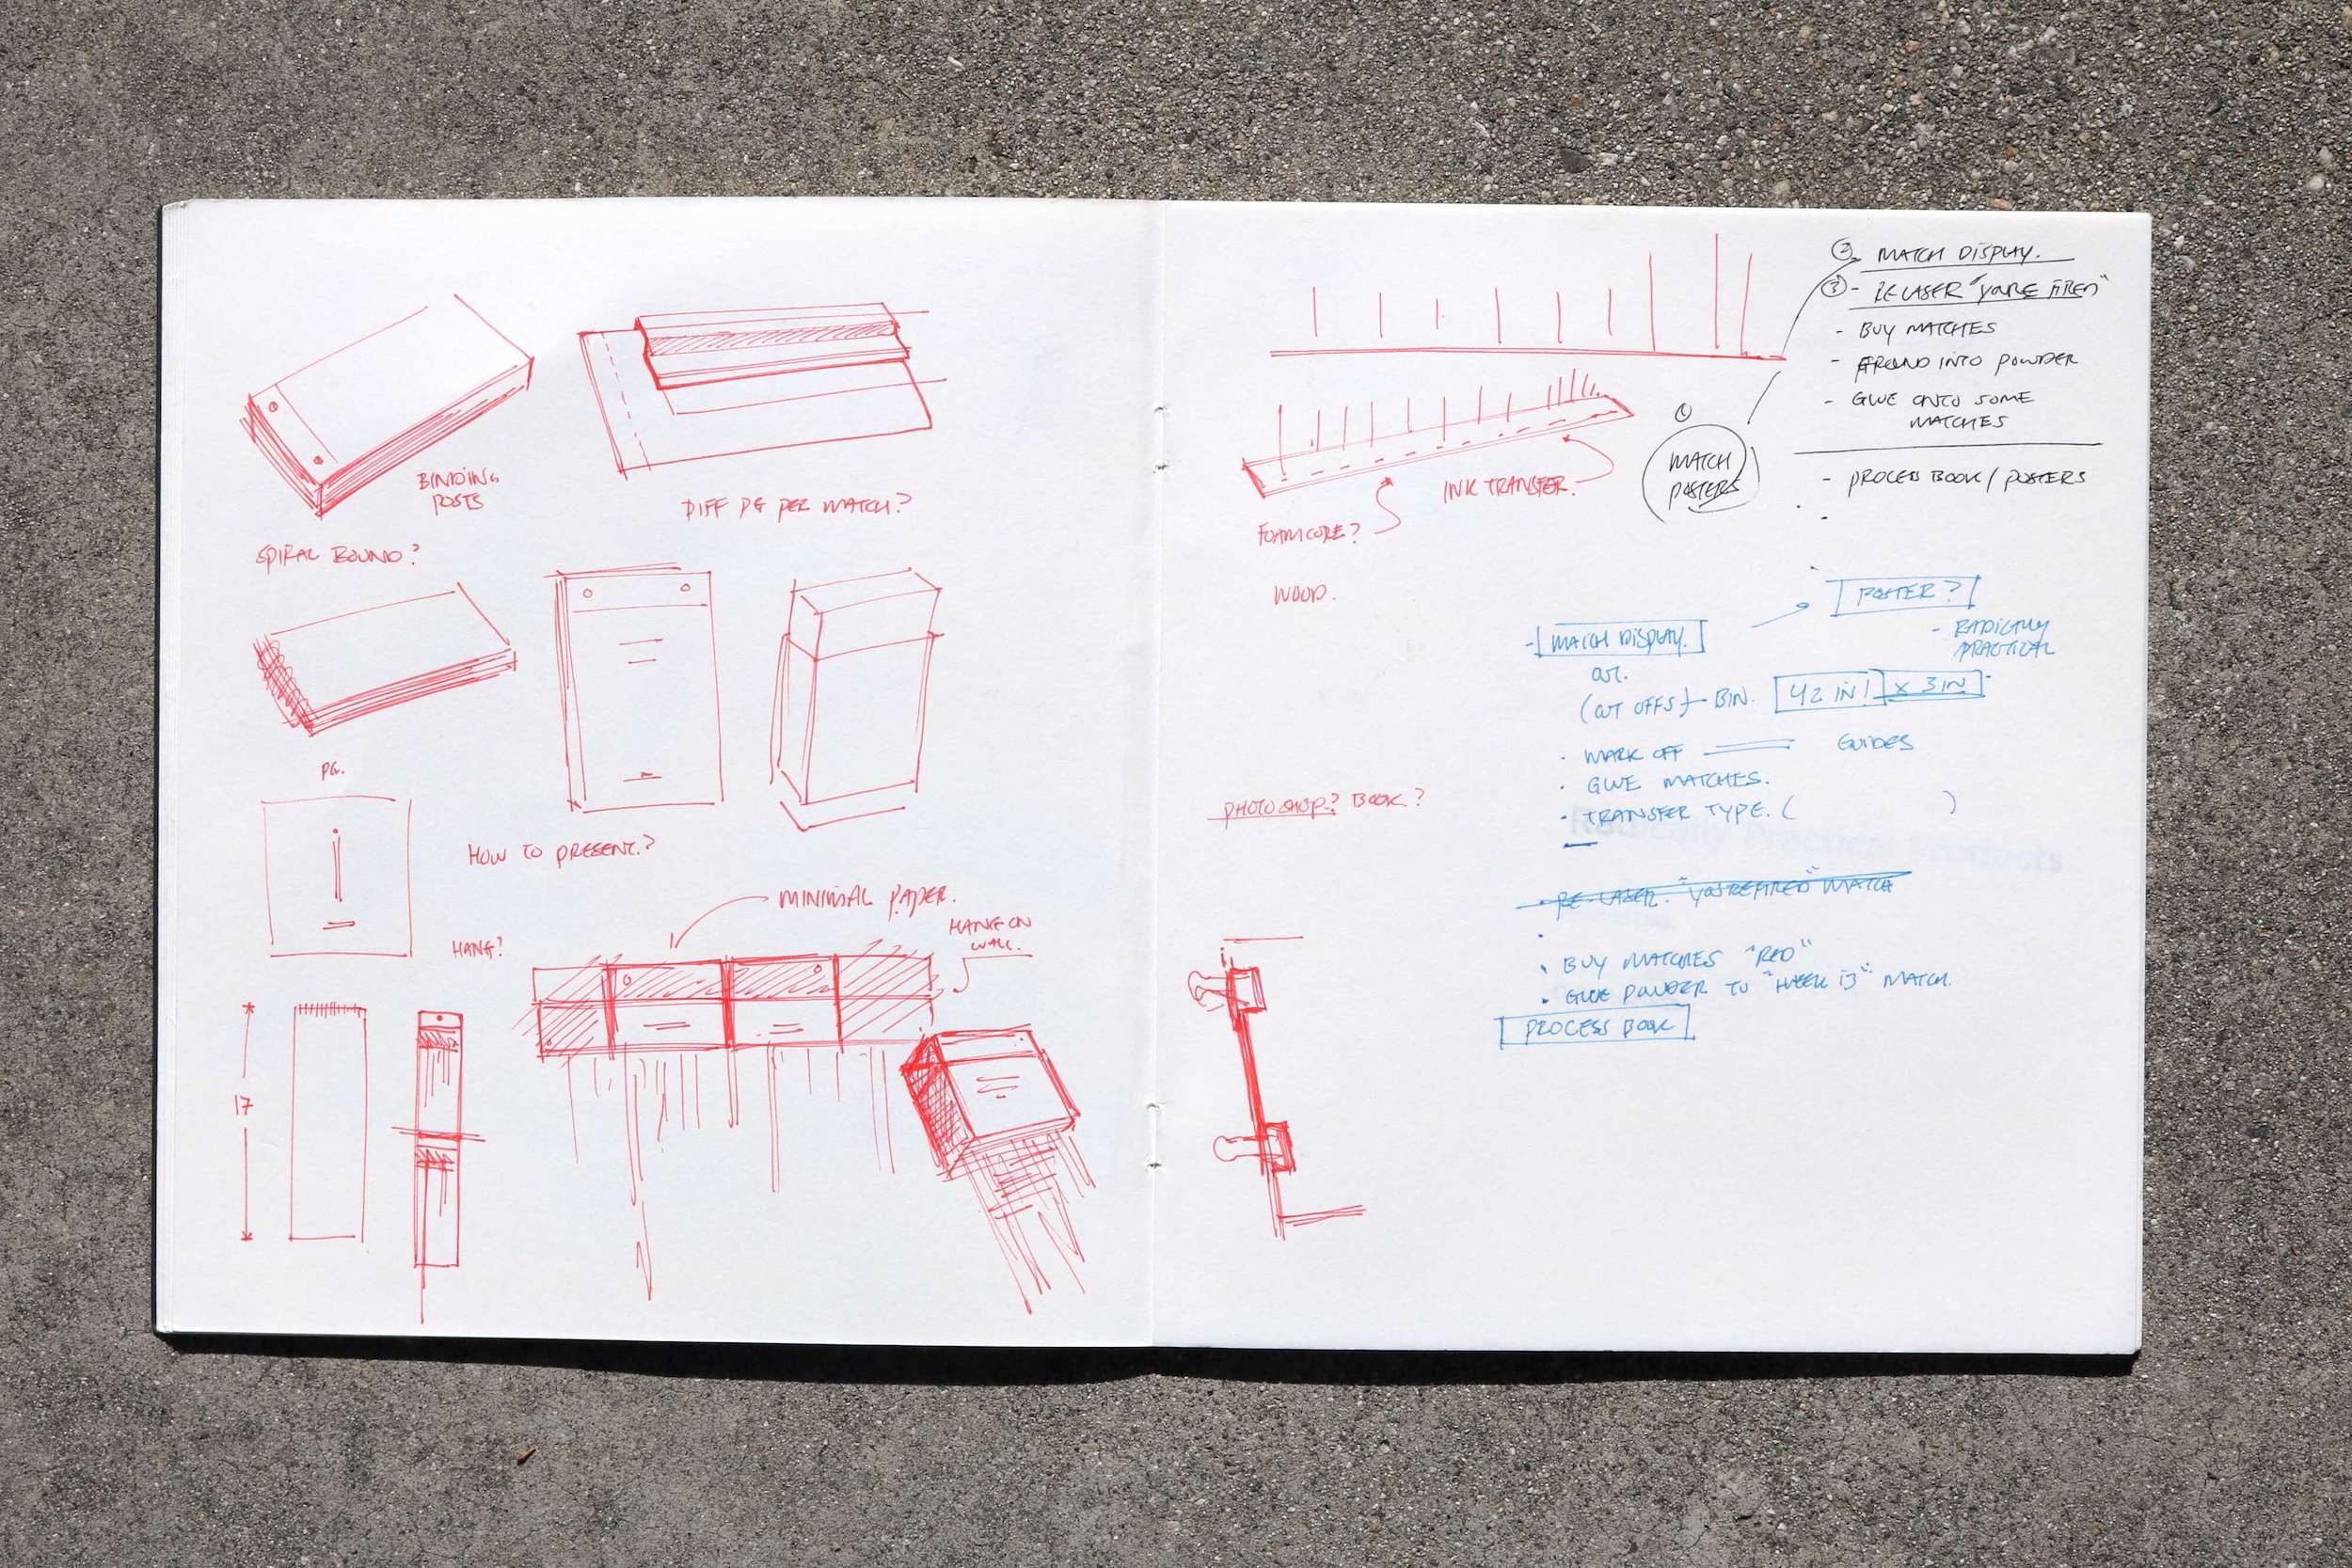 BINDING
POSTS
DIFF PG PER MATCH?
SPIRAL BOUND?
PG.
HOW TO PRESENT?
MINIMAL PAPER.
HANG ON
WALL.
HANG?
17
② MATCH DISPLAY.
③ - RELASER "YOU'RE FIRED"
- BUY MATCHES
- GROUND INTO POWDER
- GLUE ONTO SOME
MATCHES
- PROCESS BOOK / POSTERS
①
MATCH
POSTERS
INK TRANSFER.
FOAMCORE?
WOOD.
POSTER?
- RADICALLY
PRACTICAL
- MATCH DISPLAY.
OR.
(CUT OFFS) - BIN. 42 IN! X 3 IN
· MARK OFF GUIDES
· GLUE MATCHES.
· TRANSFER TYPE. ( )
PHOTOSHOP? BOOK?
Radically Practical Products
· RE-LASER. "YOU'RE FIRED" MATCH
· BUY MATCHES "RED"
· GLUE POWDER TO "WEEK 13" MATCH.
PROCESS BOOK